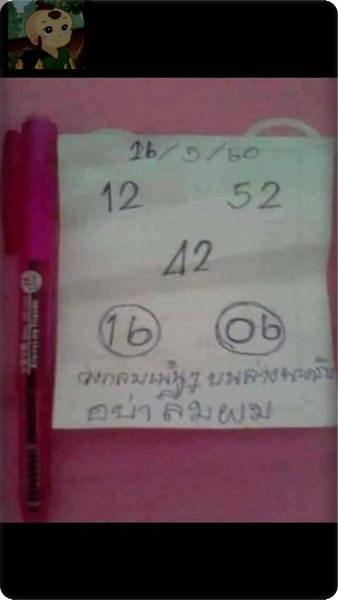 16/5/60
12 52
42
16 06
วงกลมเน้นๆ บนล่างนะครับ
อย่าลืมผม